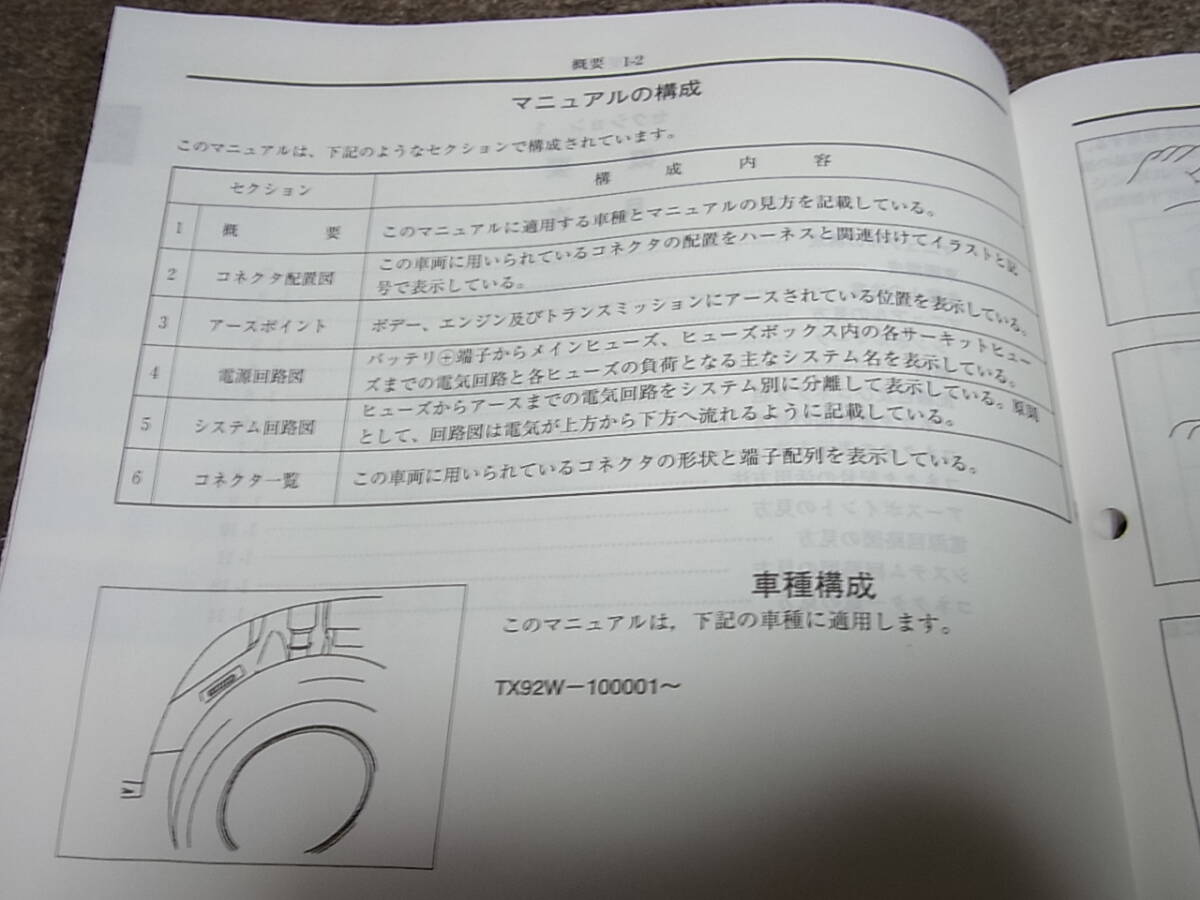 概要 1-2
マニュアルの構成
このマニュアルは、下記のようなセクションで構成されています。
セクション 構成内容
1 概要 このマニュアルに適用する車種とマニュアルの見方を記載している。
2 コネクタ配置図 この車両に用いられているコネクタの配置をハーネスと関連付けてイラストと記
号で表示している。
3 アースポイント ボデー、エンジン及びトランスミッションにアースされている位置を表示している。
4 電源回路図 バッテリ⊕端子からメインヒューズ、ヒューズボックス内の各サーキットヒュー
ズまでの電気回路と各ヒューズの負荷となる主なシステム名を表示している。
5 システム回路図 ヒューズからアースまでの電気回路をシステム別に分離して表示している。原則
として、回路図は電気が上方から下方へ流れるように記載している。
6 コネクタ一覧 この車両に用いられているコネクタの形状と端子配列を表示している。
車種構成
このマニュアルは，下記の車種に適用します。
TX92W－100001～